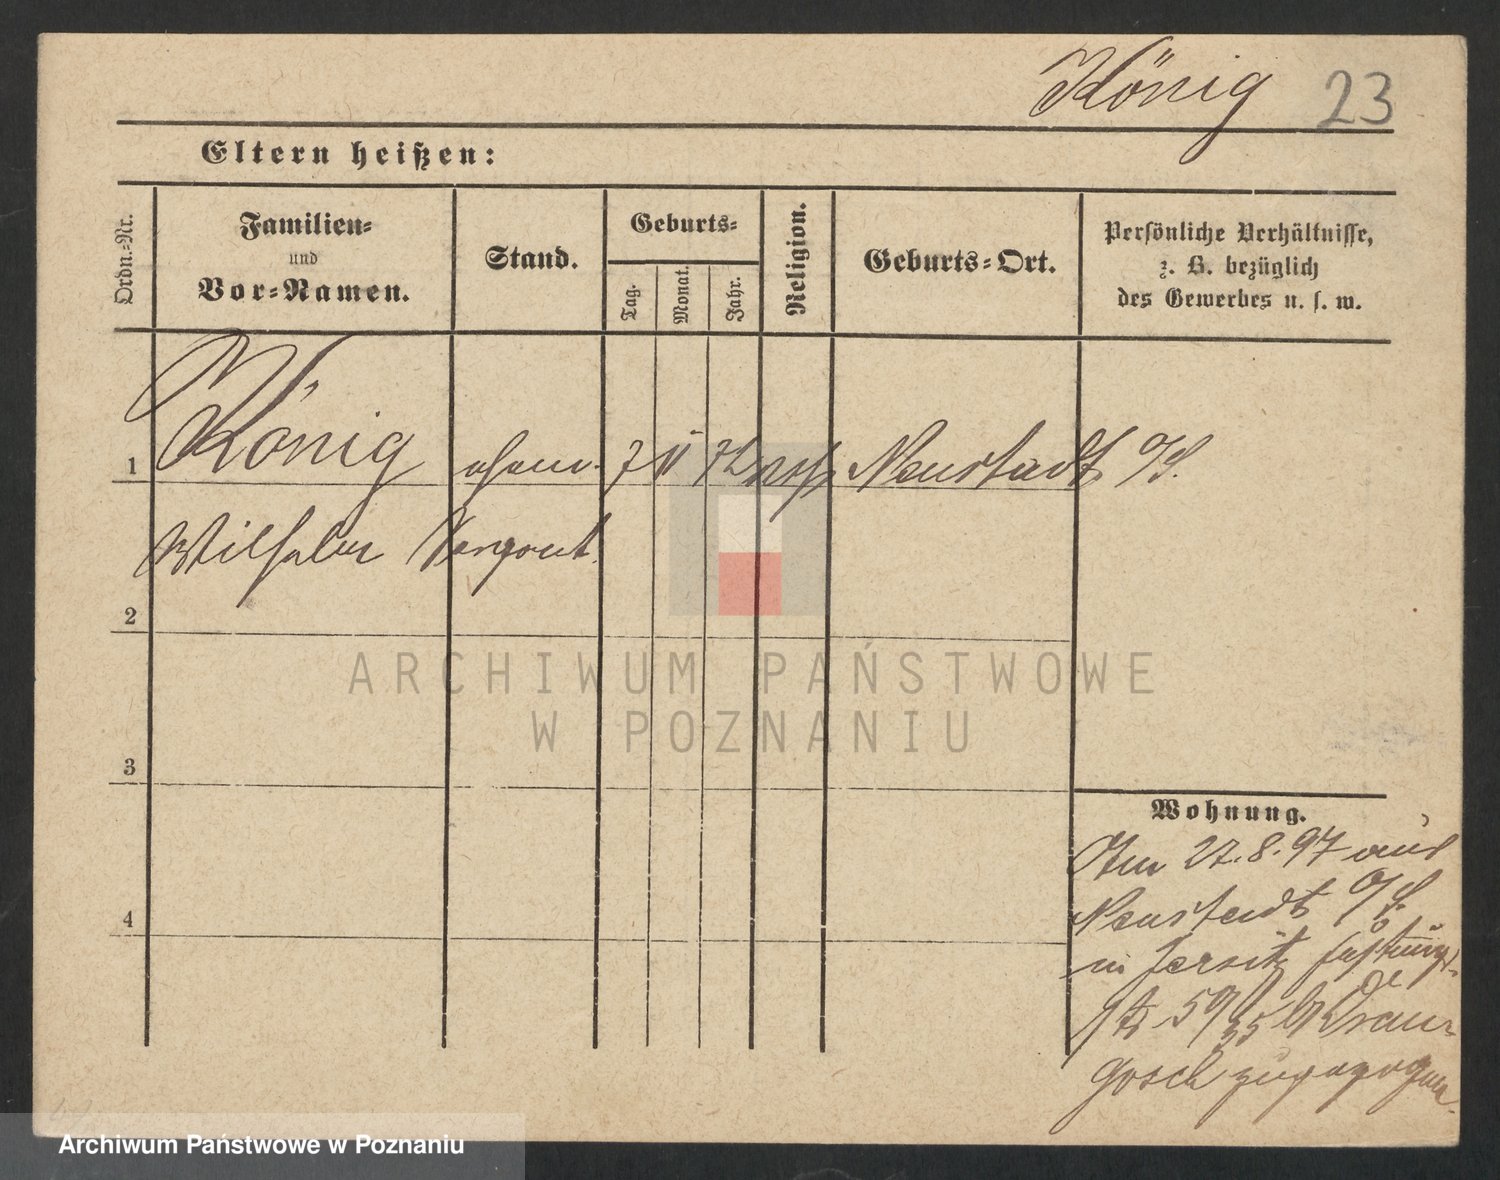 König 23
Eltern heißen:
Ordn.-Nr.
Familien-
und
Vor-Namen.
Stand.
Geburts-
Tag.
Monat.
Jahr.
Religion.
Geburts-Ort.
Persönliche Verhältnisse,
z. B. bezüglich
des Gewerbes u. s. w.
1 König 7 72 Neustadt O/S.
Wilhelm Sergeant.
2
3
4
Wohnung.
Am 27.8.97 aus
Neustadt O/S.
in Jersitz
59
zugezogen.
ARCHIWUM PAŃSTWOWE
W POZNANIU
Archiwum Państwowe w Poznaniu